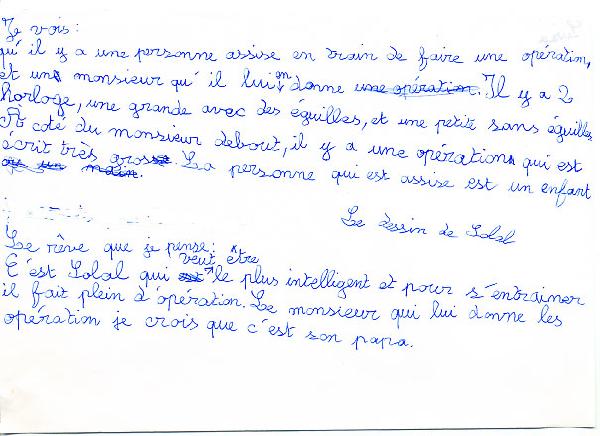 Je vois :
qu'il y a une personne assise en train de faire une opération,
et un monsieur qu'il lui en donne une opération. Il y a 2
horloge, une grande avec des éguilles, et une petite sans éguilles
A coté du monsieur debout, il y a une opération qui est
écrit très grosse. La personne qui est assise est un enfant
Le dessin de Lolal
Le rêve que je pense :
veut être
C'est Lolal qui est le plus intelligent et pour s'entrainer
il fait plein d'opération. Le monsieur qui lui donne les
opération je crois que c'est son papa.